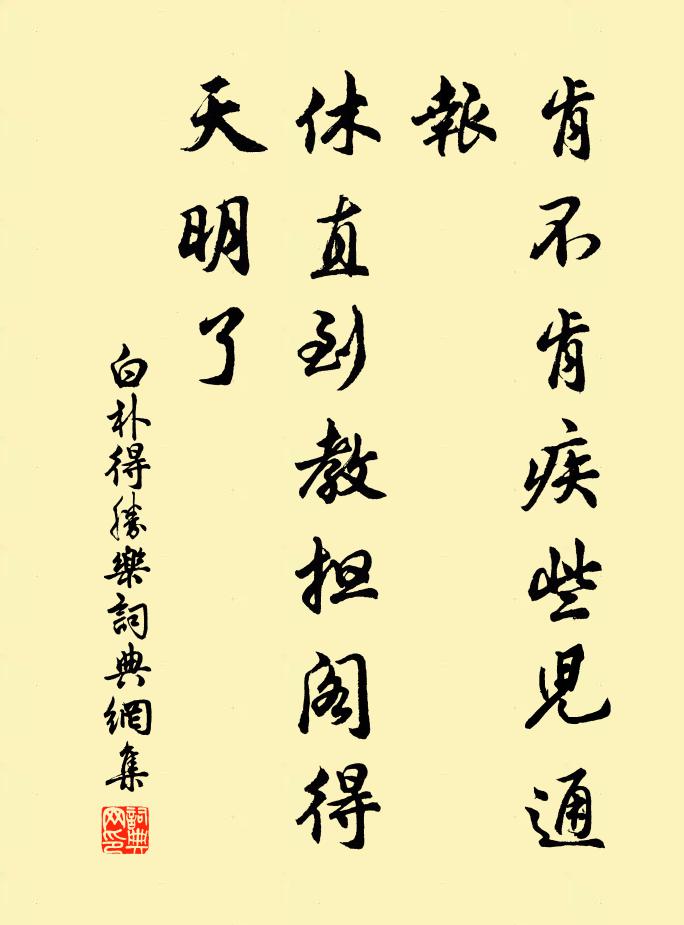 肯不肯疾些兒通
報
休直到教担閣得
天明了
白朴得勝樂詞典網集
詞典网印